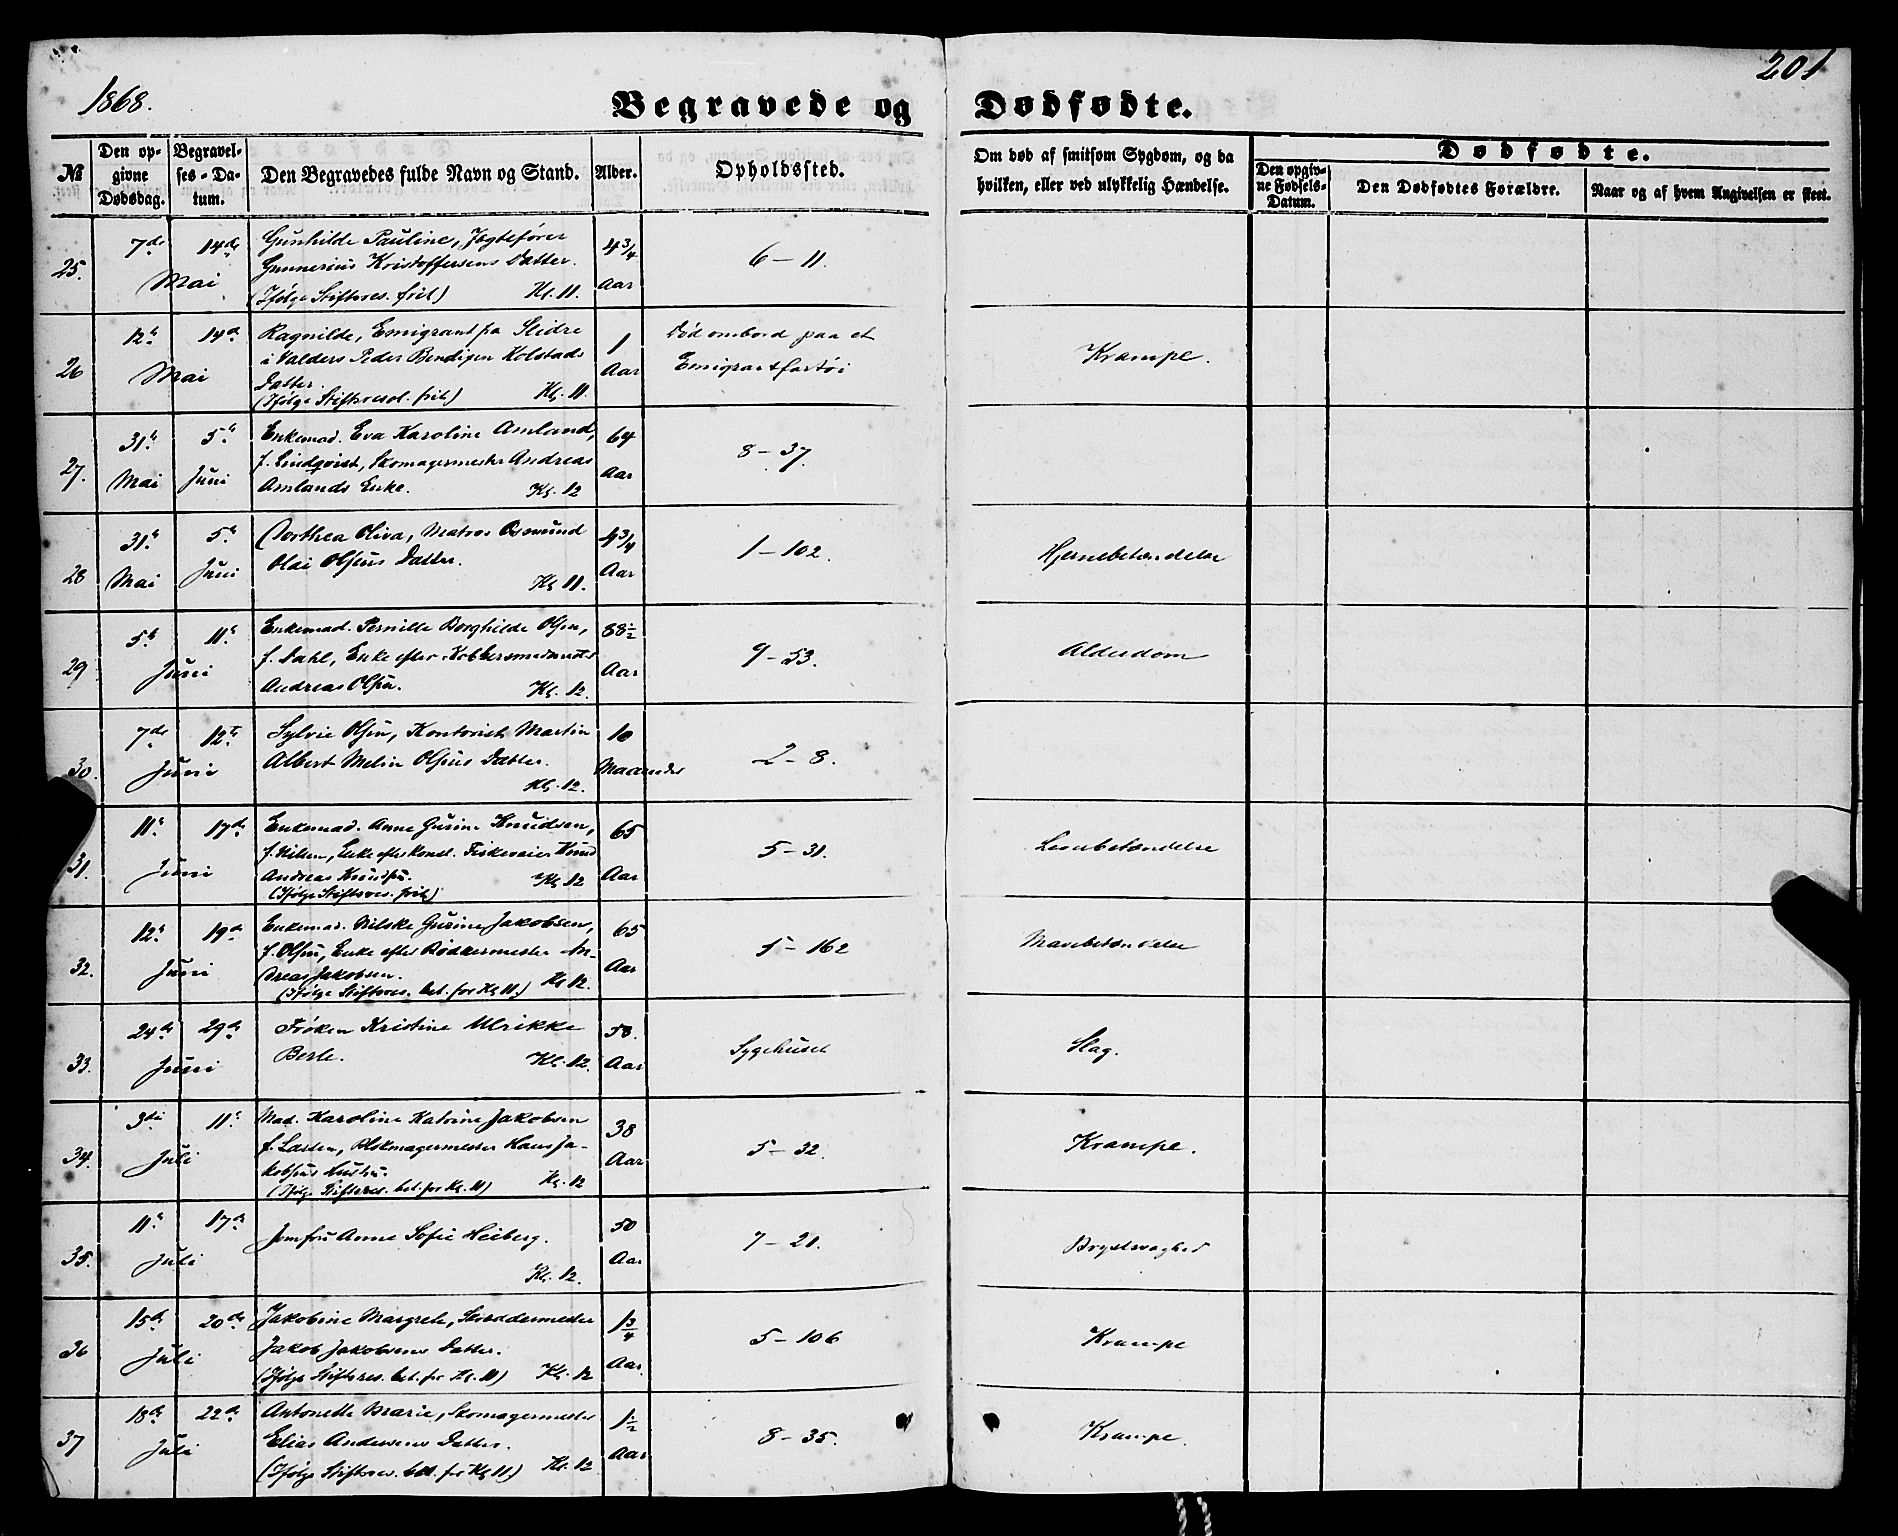 1868.
201
Begravede og Dødfødte.
№
Den opgivne Dødsdag.
Begravelses-Datum.
Den Begravedes fulde Navn og Stand.
Alder.
Opholdssted.
Om død af smitsom Sygdom, og da hvilken, eller ved ulykkelig Hændelse.
Dødfødte.
Den opgivne Fødsels-Datum.
Den Dødfødtes Forældre.
Naar og af hvem Angivelsen er skeet.
25. 7de 14de Mai
Gunhilde Pauline, Jagtefører
Gunnerius Kristoffersens Datter.
(Ifølge Stiftsres. frit) Kl. 11.
4 3/4 Aar
6 – 11.
26 12te 14de Mai
Ragnilde, Emigrant fra Slidre
i Valders Peder Bendigen Kolstads
Datter.
(Ifølge Stiftsresol. frit) Kl. 11
1 Aar
Død ombord paa et
Emigrantfartøi
Krampe.
27. 31te Mai 5te Juni
Enkemad. Eva Karoline Amland,
f. Lindqvist, Skomagermester Andreas
Amlands Enke. Kl. 12
64 Aar
8 – 37.
28 31te Mai 5te Juni
Dorthea Oliva, Matros Osmund
Olai Olsens Datter.
Kl 11.
4 3/4 Aar
1 – 102.
Hjernebetændelse
29 5te 11te Juni
Enkemad. Pernille Borghilde Olsen,
f. Dahl, Enke efter Kobbersmedmester
Andreas Olsen. Kl. 12.
88 1/2 Aar
9 – 53.
Alderdom
30. 7de 12te Juni
Sylvie Olsen, Kontorist Martin
Albert Melin Olsens Datter.
Kl. 12.
10 Maaneder
2 – 8.
31. 11te 17de Juni
Enkemad. Anne Gurine Knudsen,
f. Nilsen, Enke efter Konst. Fiskeveier Knud
Andreas Knudsen. Kl 12
(Ifølge Stiftsres. frit)
65 Aar
5 – 31.
betændelse
32. 12te 19de Juni
Enkemad. Nilske Gurine Jakobsen,
f. Olsen, Enke efter Bødkermester An-
dreas Jakobsen. Kl 12.
(Ifølge Stiftsres. bet. for Kl 11.)
65 Aar
5 – 162
Mavebetændelse
33. 24de 29de Juni
Frøken Kristine Ulrikke
Berle. Kl. 12.
58. Aar
Sygehuset
Slag.
34. 3die 11te Juli
Mad. Karoline Katrine Jakobsen
f. Larsen, Blokmagermester Hans Ja-
kobsens Hustru. Kl. 12
(Ifølge Stiftsres. bet. for Kl. 11)
38 Aar
5 – 32.
Krampe.
35. 11te 17de Juli
Jomfru Anne Sofie Heiberg.
Kl. 12.
50 Aar
7 – 21.
Brystsvaghed
36 15de 20de Juli
Jakobine Margrete, Skræddermester
Jakob Jakobsens Datter.
(Ifølge Stiftsres. bet. for Kl. 11) Kl. 12
1 3/4 Aar.
5 – 106
Krampe
37 18de 22de Juli
Antonette Marie, Skomagermester
Elias Andersens Datter.
(Ifølge Stiftsres. bet. for Kl 11.) Kl. 12
1 1/2 Aar.
8 – 35.
Krampe.